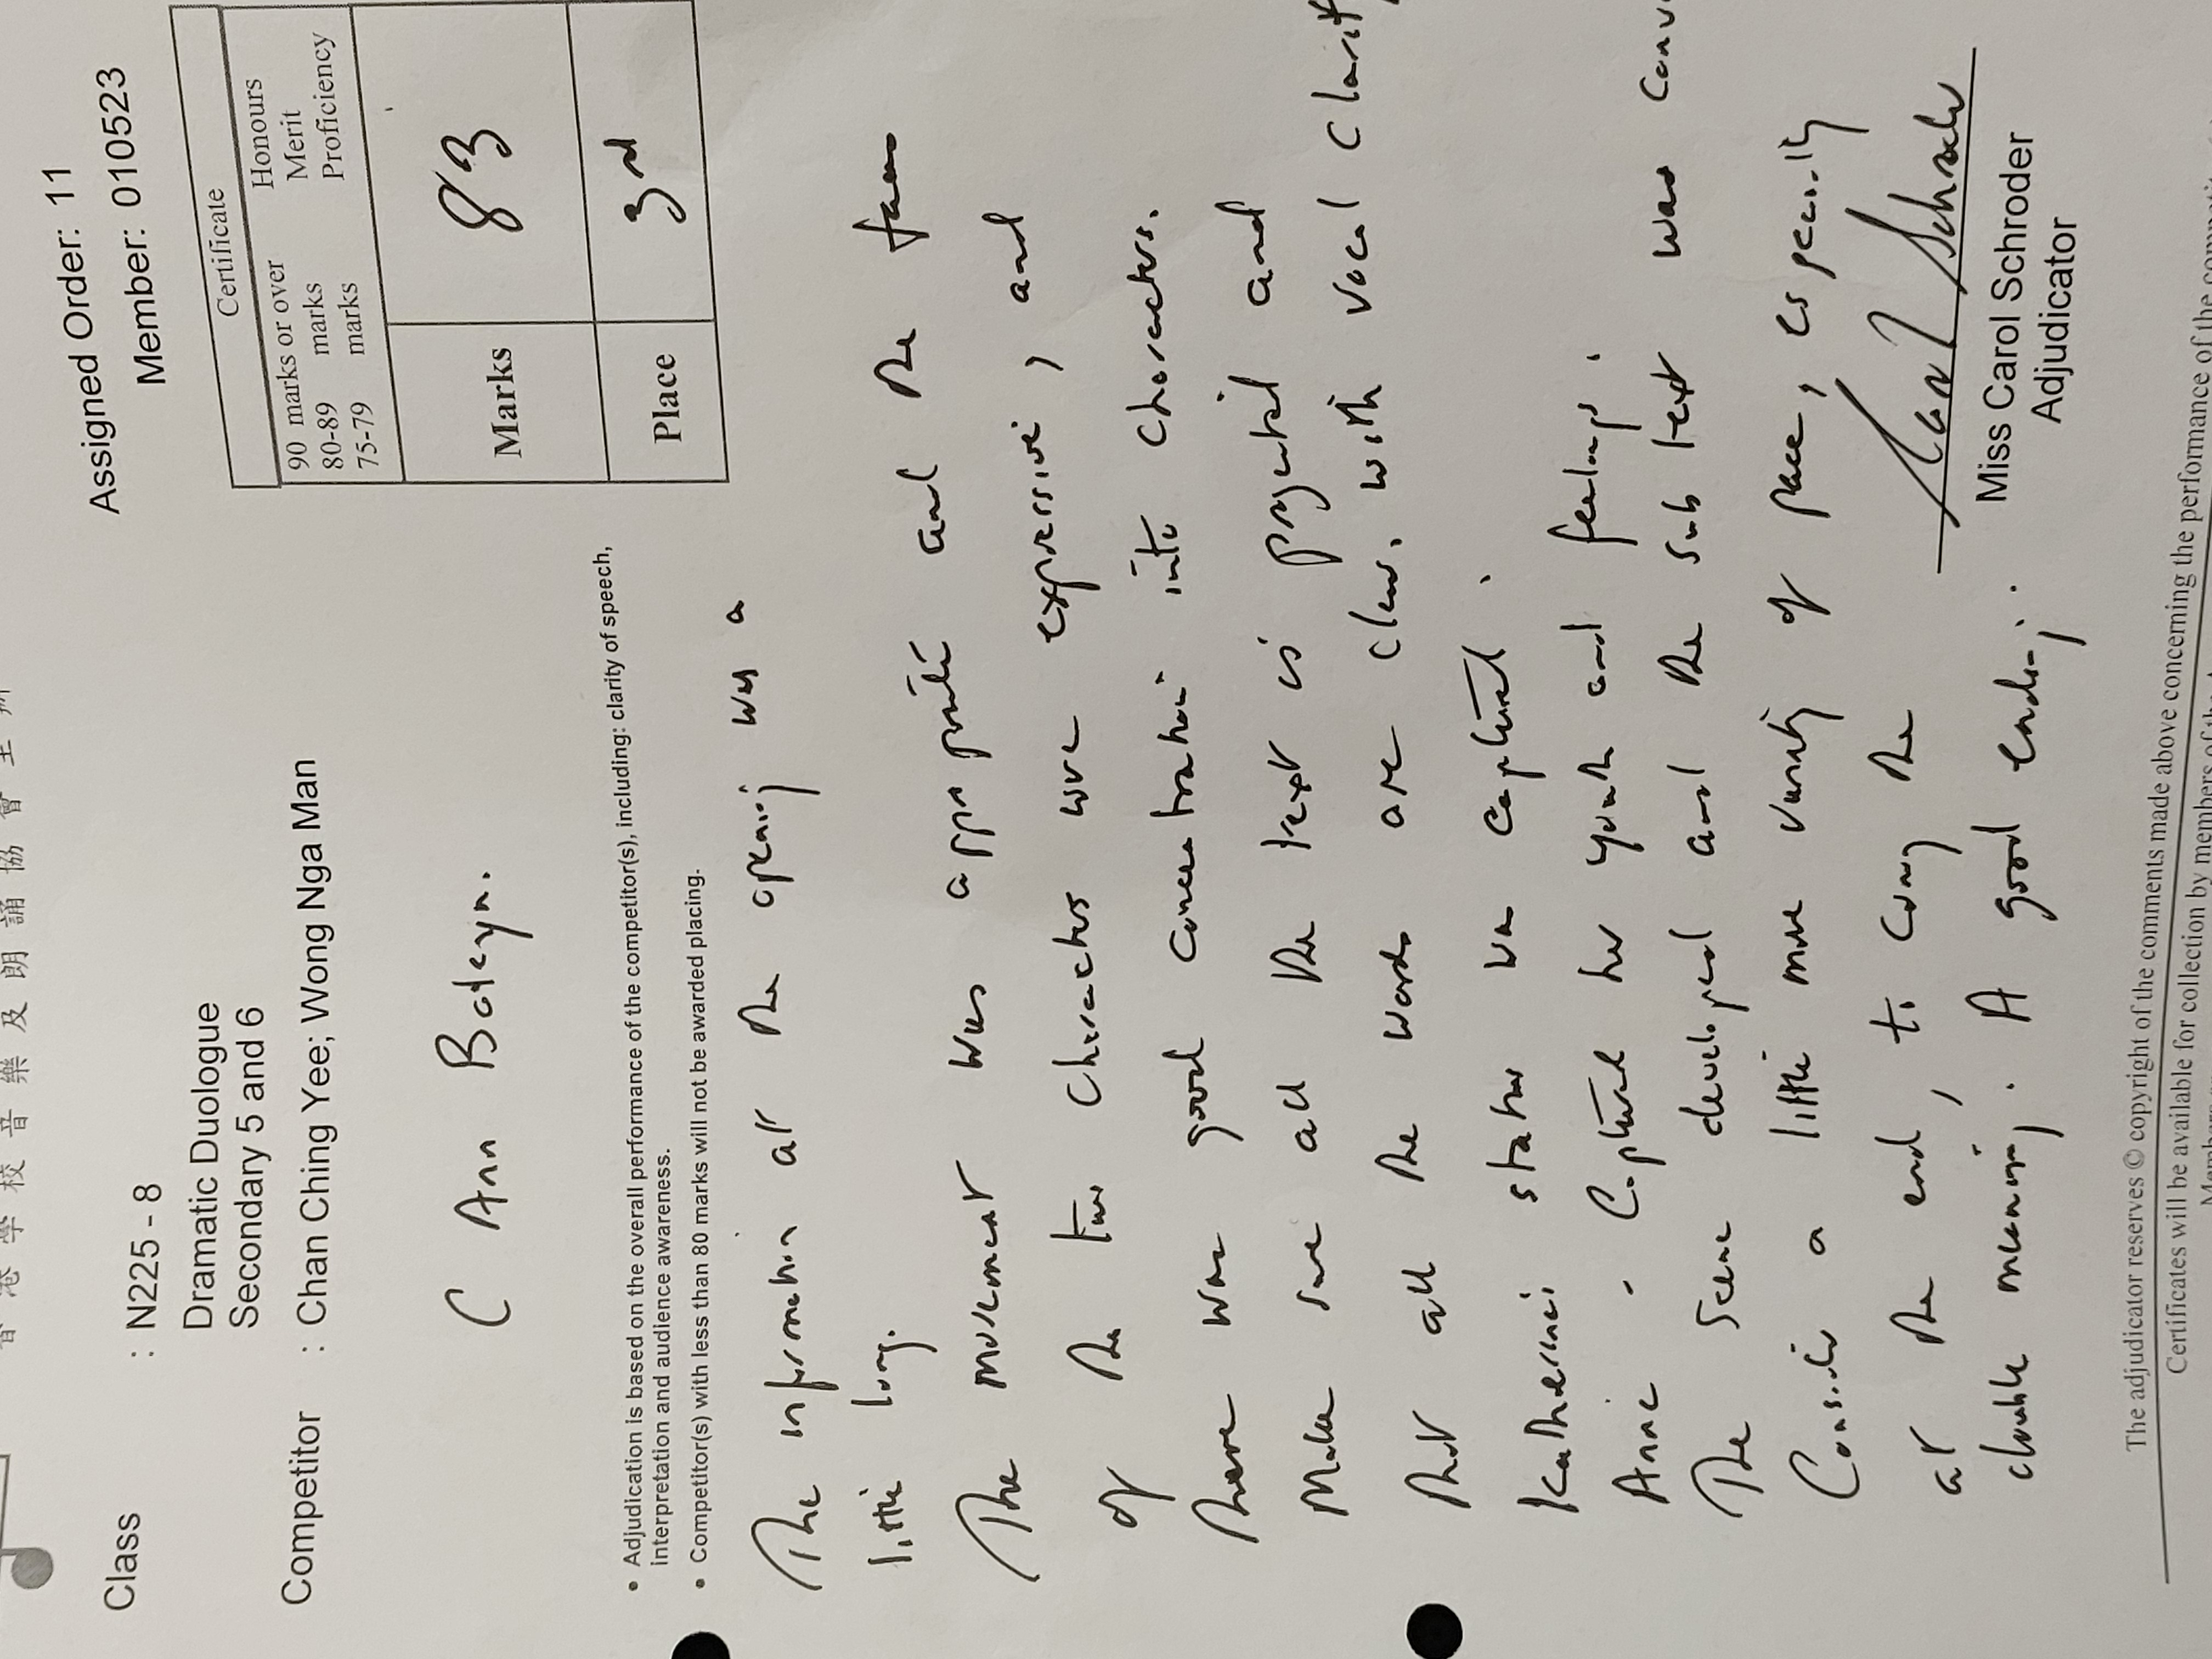 香港學校音樂及朗誦協會主辦
Assigned Order: 11
Member: 010523
Class : N225 - 8
Dramatic Duologue
Secondary 5 and 6
Competitor : Chan Ching Yee; Wong Nga Man
Certificate
90 marks or over Honours
80-89 marks Merit
75-79 marks Proficiency
Marks 83
Place 3rd
C Ann Boleyn.
• Adjudication is based on the overall performance of the competitor(s), including: clarity of speech,
interpretation and audience awareness.
• Competitor(s) with less than 80 marks will not be awarded placing.
The information at the opening was a
little long.
The movement was appropriate and the faces
of the two characters were expressive, and
there was good concentration into characters.
Make sure all the text is projected and
that all the words are clear, with vocal clarity
Katherine's status was captured.
Anne - captured her youth and feelings.
The scene developed and the sub text was
Consider a little more variety of pace, especially
at the end, to convey the
double meaning. A good ending.
Miss Carol Schroder
Adjudicator
The adjudicator reserves © copyright of the comments made above concerning the performance of the
Certificates will be available for collection by members of the